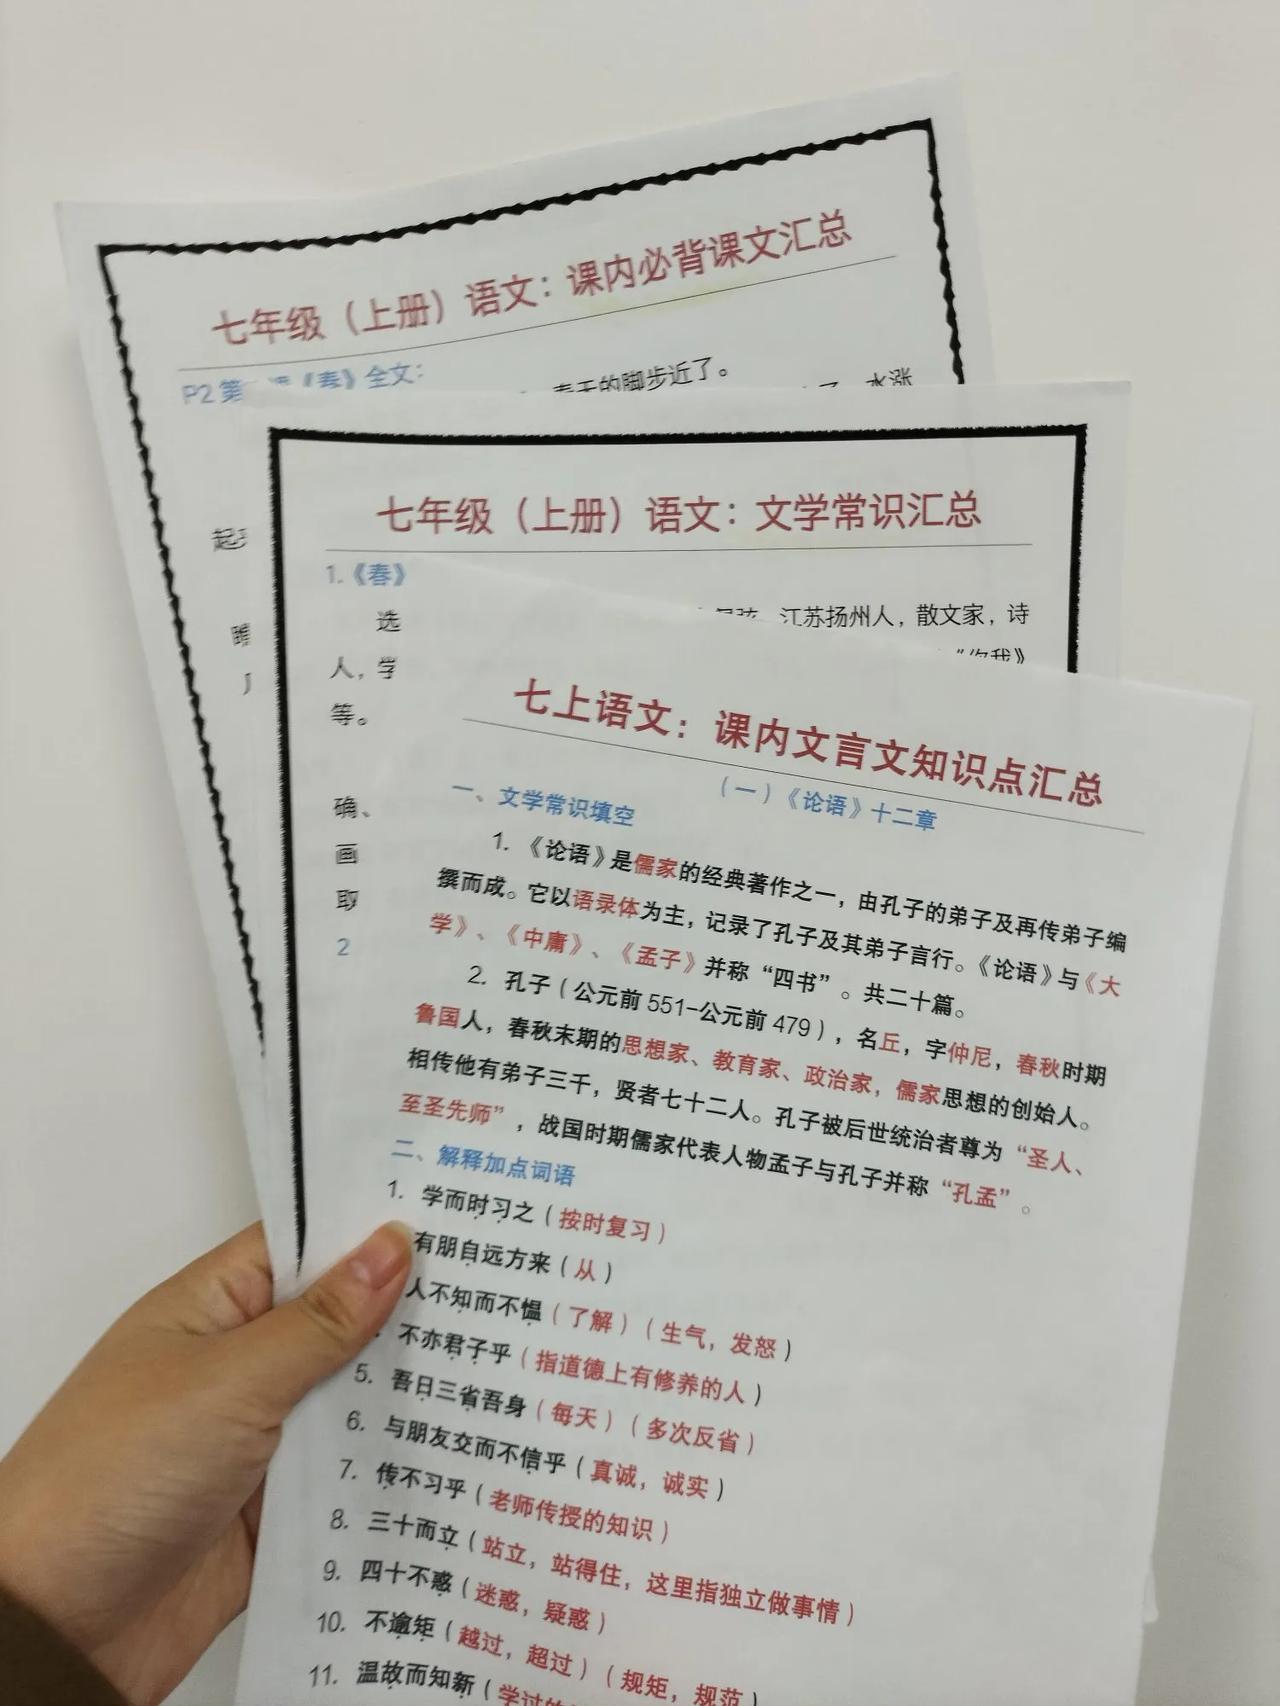 七年级（上册）语文：课内必背课文汇总
P2 第 课《春》全文：
春天的脚步近了。
水涨
起
七年级（上册）语文：文学常识汇总
1.《春》
选
江苏扬州人，散文家，诗
人，学
《你我》
等。
确、
画
取
2
七上语文：课内文言文知识点汇总
（一）《论语》十二章
一、文学常识填空
1. 《论语》是儒家的经典著作之一，由孔子的弟子及再传弟子编
撰而成。它以语录体为主，记录了孔子及其弟子言行。《论语》与《大
学》、《中庸》、《孟子》并称“四书”。共二十篇。
2. 孔子（公元前 551-公元前 479），名丘，字仲尼，春秋时期
鲁国人，春秋末期的思想家、教育家、政治家，儒家思想的创始人。
相传他有弟子三千，贤者七十二人。孔子被后世统治者尊为“圣人、
至圣先师”，战国时期儒家代表人物孟子与孔子并称“孔孟”。
二、解释加点词语
1. 学而时习之（按时复习）
有朋自远方来（从）
人不知而不愠（了解）（生气，发怒）
不亦君子乎（指道德上有修养的人）
5. 吾日三省吾身（每天）（多次反省）
6. 与朋友交而不信乎（真诚，诚实）
7. 传不习乎（老师传授的知识）
8. 三十而立（站立，站得住，这里指独立做事情）
9. 四十不惑（迷惑，疑惑）
10. 不逾矩（越过，超过）（规矩，规范）
11. 温故而知新（学过的